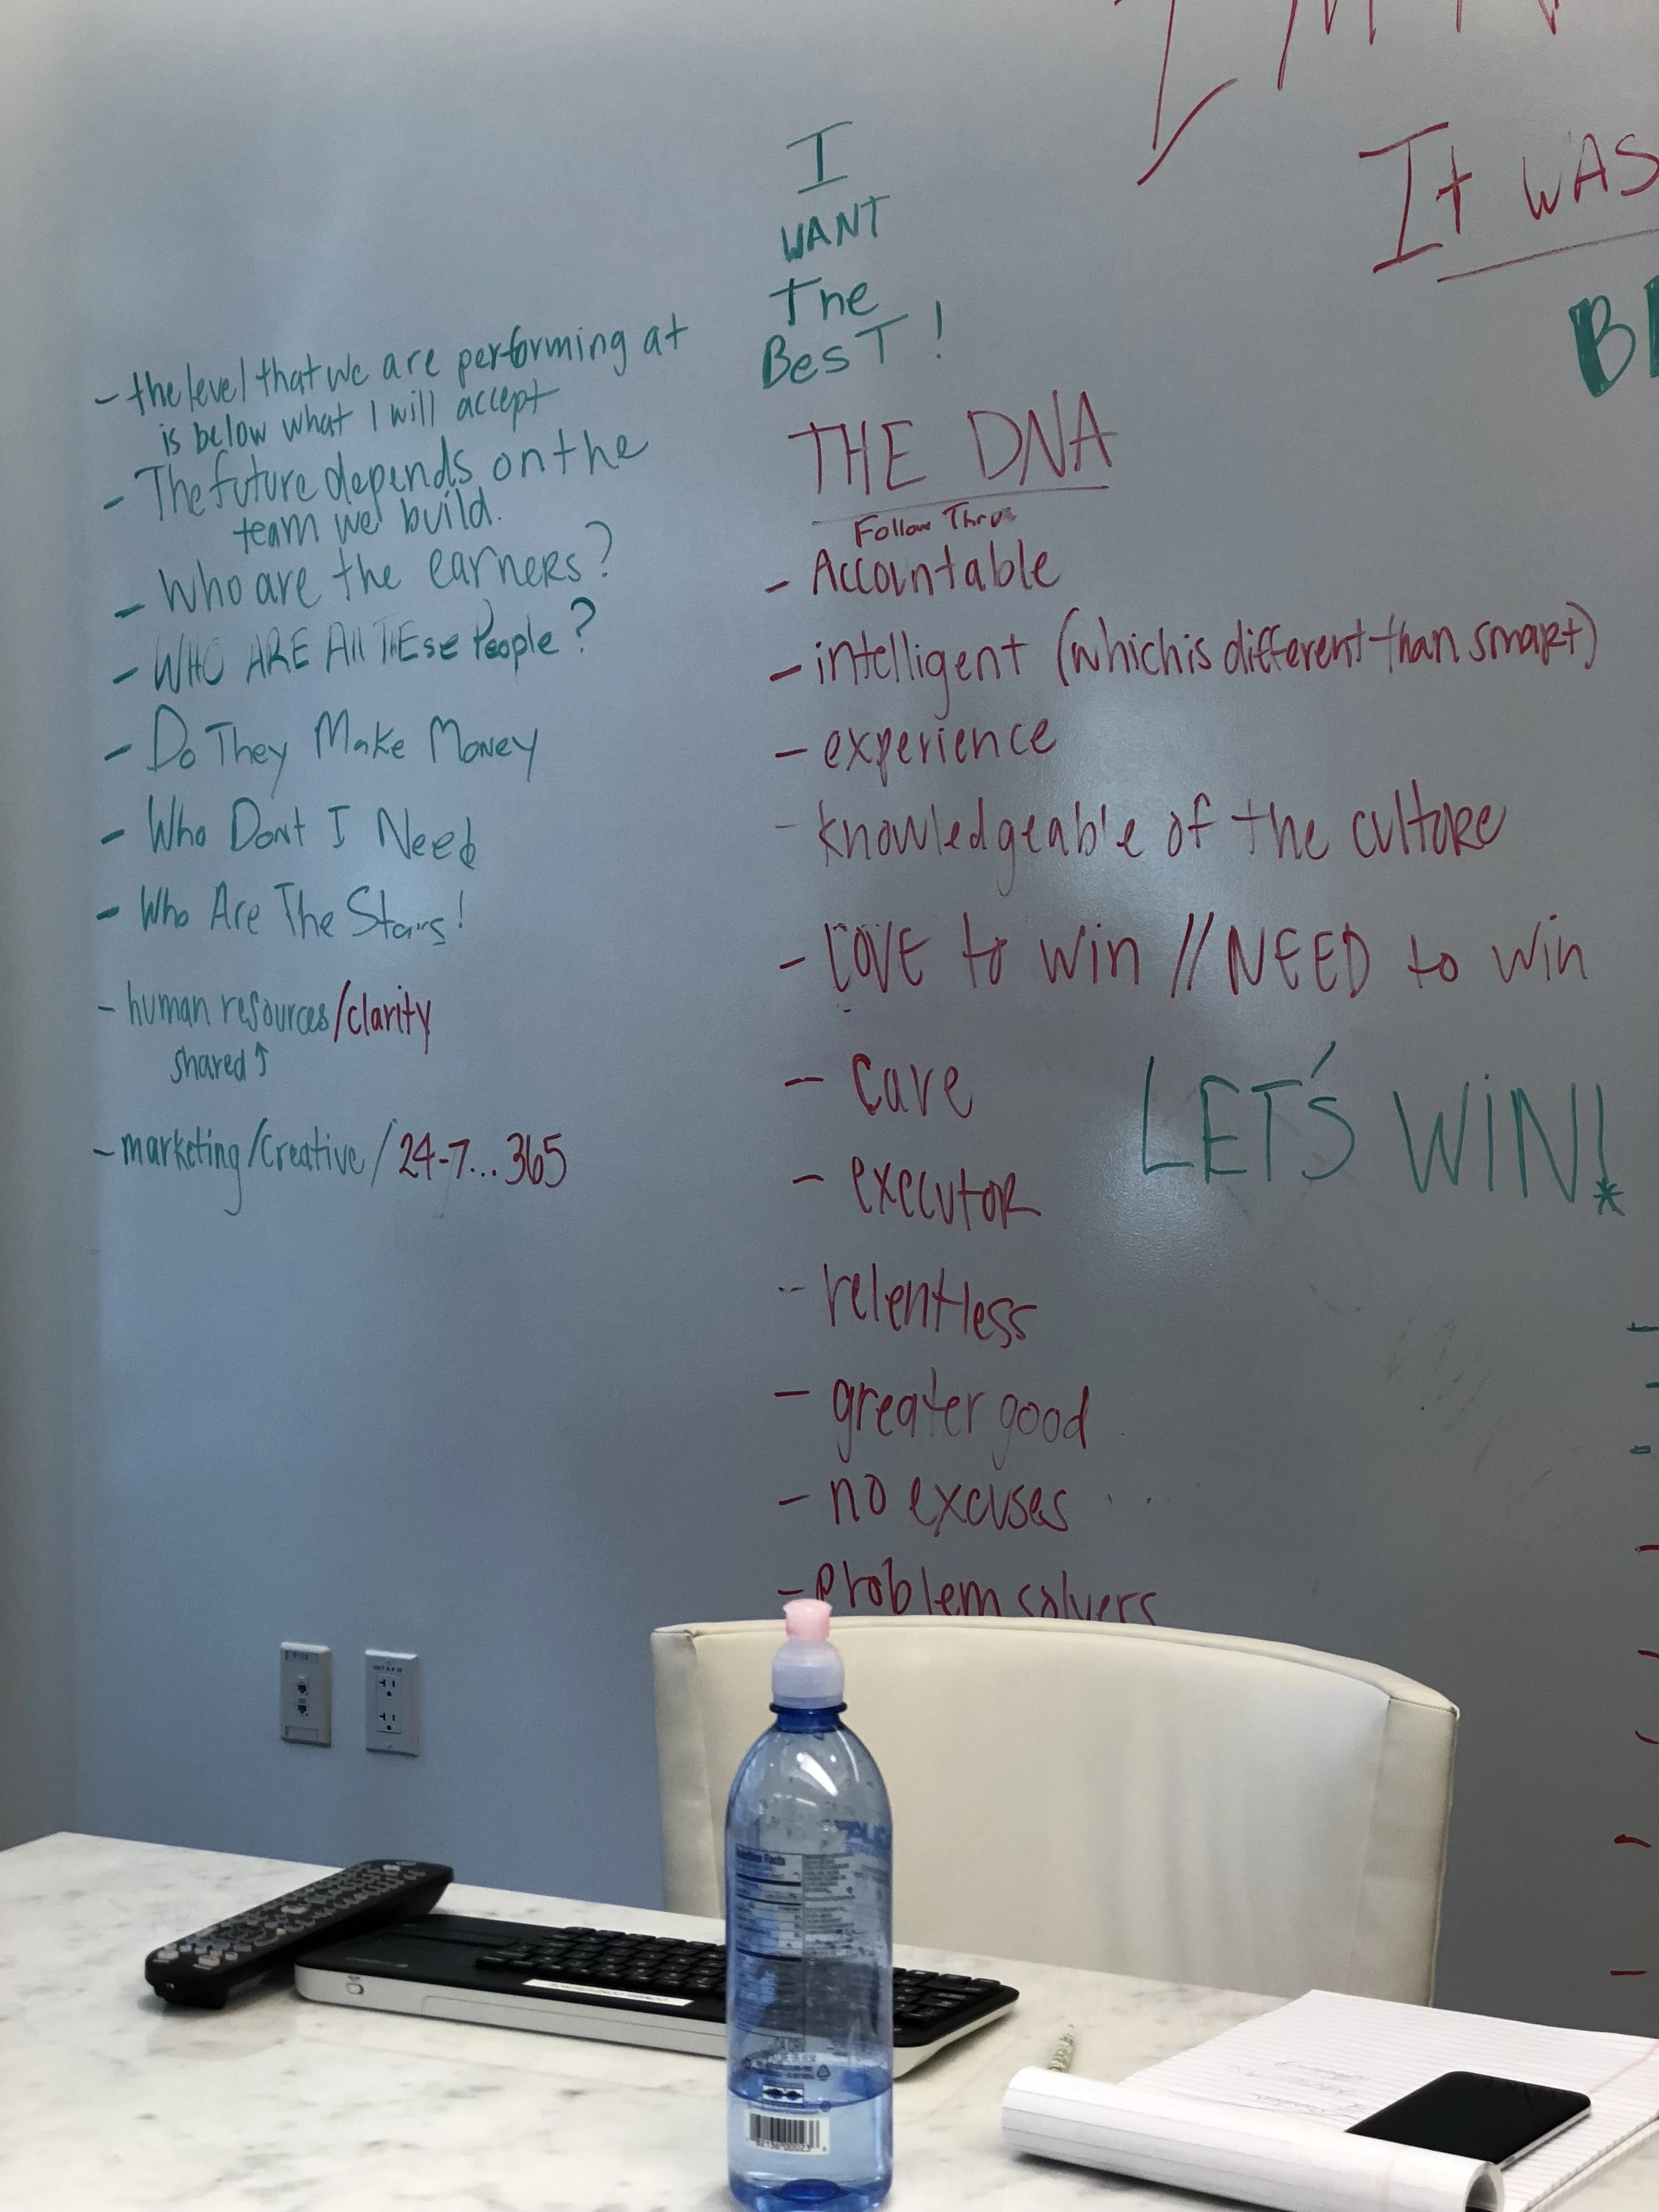 I
WANT
The
BesT!
It WAS
- the level that we are performing at
is below what I will accept
- The future depends on the
team we build.
- Who are the earners?
- WHO ARE All THEse People?
- Do They Make Money
- Who Dont I Need
- Who Are The Stars!
- human resources/clarity
shared ↑
- marketing/Creative/24-7...365
THE DNA
Follow Thru
- Accountable
- intelligent (which is different than smart)
- experience
- knowledgeable of the culture
- LOVE to win // NEED to win
- care
- executor
- relentless
- greater good
- no excuses
- problem solvers
LET'S WiN!
*
Nutrition Facts